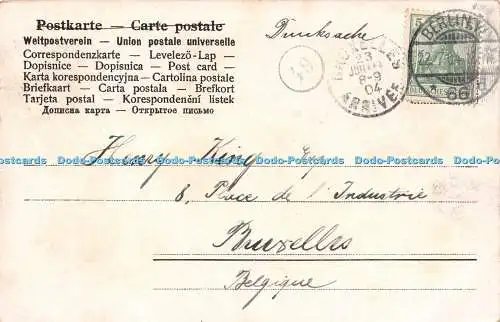 Postkarte — Carte postale
Weltpostverein — Union postale universelle
Correspondenzkarte — Levelező-Lap —
Dopisnice — Dopisnica — Post card —
Karta korespondencyjna — Cartolina postale
Briefkaart — Carta postala — Brefkort
Tarjeta postal — Korespondenční lístek
Дописна карта — Открытое письмо
Drucksache
64
BRUXELLES
23
JUILLET
8-9
04
ARRIVÉE
BERLIN
66
5
Henry King
8, Place de l'Industrie
Bruxelles
Belgique
Dodo-Postcards Dodo-Postcards Dodo-Postcards Dodo-Postcards Dodo-Postcards Dodo-Postcards